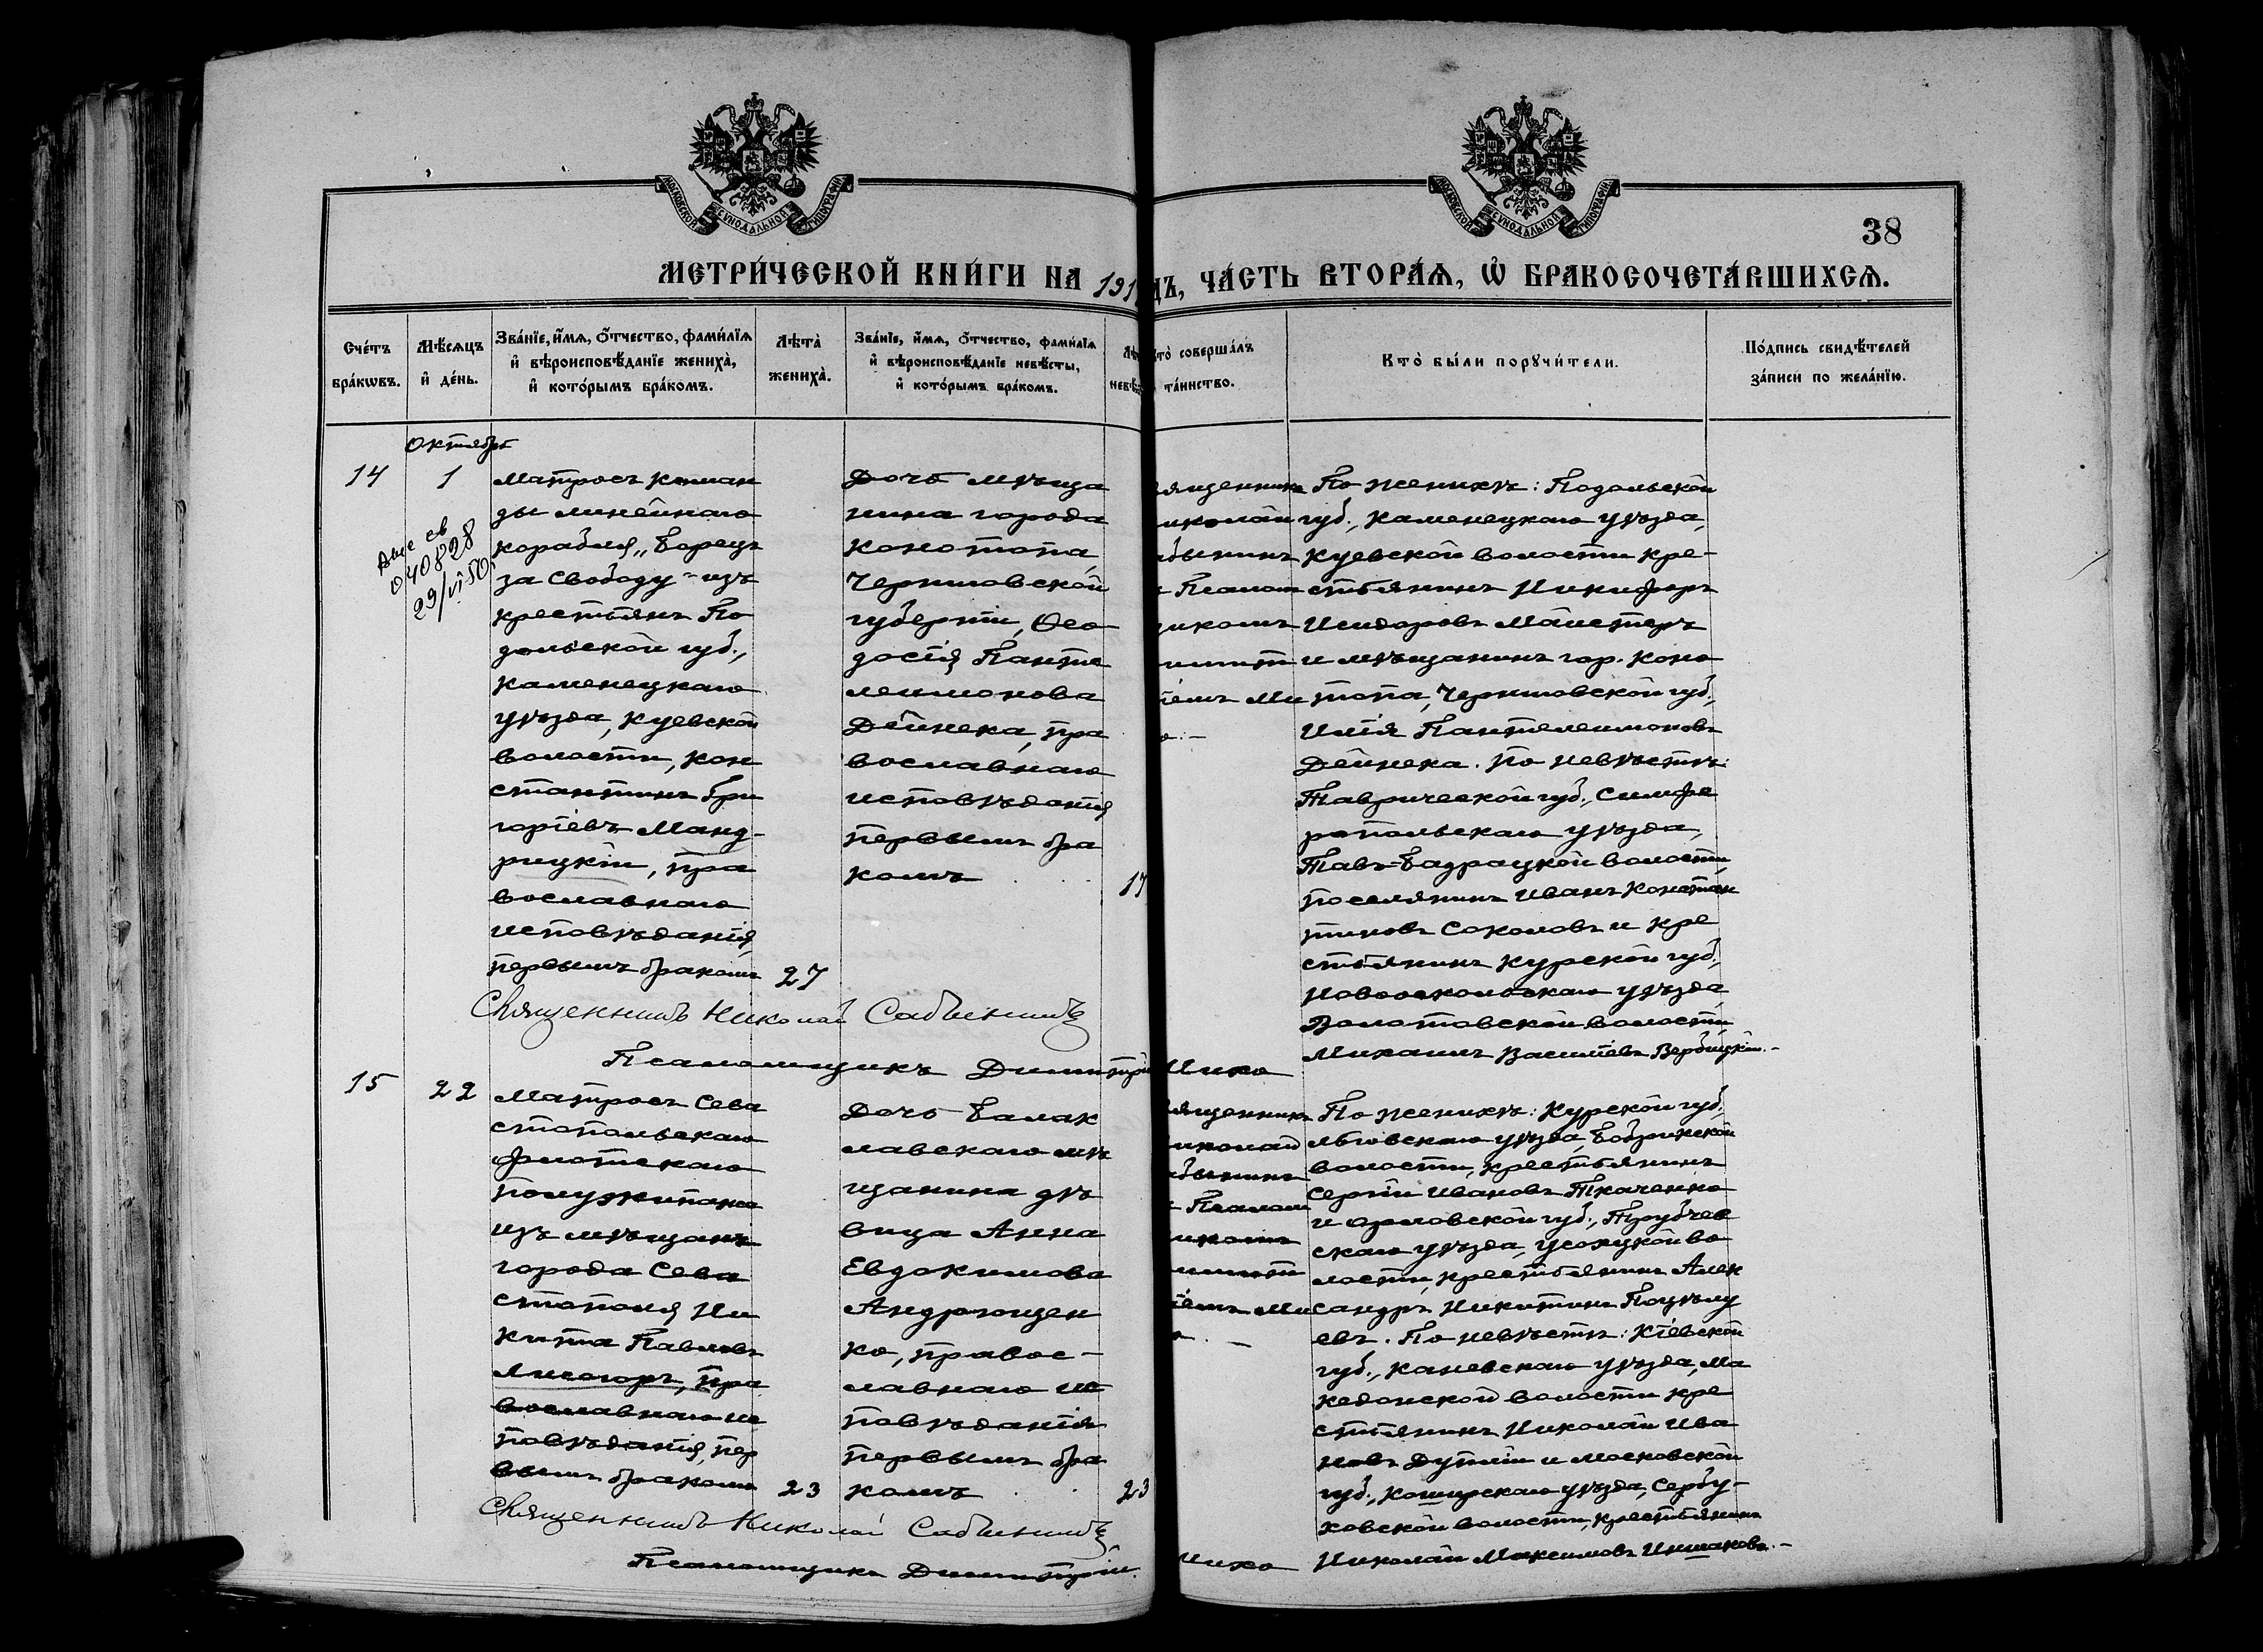 МОСКОВСКОЙ СѴНОДАЛЬНОЙ ТИПОГРАФІИ
МОСКОВСКОЙ СѴНОДАЛЬНОЙ ТИПОГРАФІИ
38
МЕТРИ́ЧЕСКОЙ КНИ́ГИ НА 191
ДЪ, ЧА́СТЬ ВТОРА́Ѧ, Ѡ҆ БРАКОСОЧЕТА́ВШИХСѦ.
Сче́тъ бра́кѡвъ.
Мѣ́сѧцъ и҆ де́нь.
Зва́нїе, и҆́мѧ, ѻ҆́тчество, фами́лїѧ
и҆ вѣроисповѣ́данїе жениха̀,
и҆ кото́рымъ бра́комъ.
Лѣта̀ жениха̀.
Зва́нїе, и҆́мѧ, ѻ҆́тчество, фами́лїѧ
и҆ вѣроисповѣ́данїе невѣ́сты,
и҆ кото́рымъ бра́комъ.
Лѣ
невѣ
то̀ соверша́лъ
та́инство.
Кто̀ бы́ли порꙋчи́тели.
По́дпись свидѣ́телей
за́писи по жела́нїю.
Октябрь
14
1
040828
29/VI 50
Матросъ коман
ды линейнаго
корабля „Борецъ
за Свободу"-изъ
крестьянъ По
дольской губ.,
Каменецкаго
уѣзда, Куевской
волости, Кон
стантинъ Гри
горіевъ Манд-
рицкій, пра
вославнаго
исповѣданія,
первымъ бракомъ
27
Дочь мѣща
нина города
Конотопа,
Черниговской
губерніи, Ѳео-
досія Панте
леимонова
Дейнека, пра
вославнаго
исповѣданія
первымъ бра
комъ
17
ященникъ
иколай
бынинъ
Псалом
икомъ
имит
іемъ Ми
По женихѣ: Подольской
губ., Каменецкаго уѣзда,
Куевской волости кре-
стьянинъ Никифоръ
Исидоровъ Майстеръ
и мѣщанинъ гор. Коно
топа, Черниговской губ.,
Илія Пантелеимоновъ
Дейнека. По невѣстѣ:
Таврической губ., Симфе
ропольскаго уѣзда,
Тавъ-Бадрацкой волости,
поселянинъ Иванъ Констан
тиновъ Соколовъ и кре
стьянинъ Курской губ.,
Новооскольскаго уѣзда,
Волотовской волости,
Михаилъ Василіевъ Вербицкій.-
Священникъ Николай Сабынинъ
Псаломщикъ Димитрій Михо
15
22
Матросъ Сева
стопольскаго
флотскаго
полуэкипажа
изъ мѣщанъ
города Сева
стополя Ни
кита Павловъ
Лисогоръ, пра
вославнаго ис
повѣданія, пер
вымъ бракомъ
23
Дочь Балак
лавскаго мѣ
щанина дѣ
вица Анна
Евдокимова
Андрющен
ко, правос-
лавнаго ис
повѣданія
первымъ бра
комъ
23
ященникъ
иколай
бынинъ
Псалом
икомъ
имит
іемъ Ми
По женихѣ: Курской губ.,
Льговскаго уѣзда, Бобрикской
волости, крестьянинъ
Сергій Ивановъ Ткаченко
и Орловской губ., Трубчев
скаго уѣзда, Усохцкой во
лости, крестьянинъ Алек
сандръ Никитинъ Поцѣлу
евъ. По невѣстѣ: Кіевской
губ., Каневскаго уѣзда, Ма
кедонской волости кре
стьянинъ Николай Ива
новъ Дутлій и Московской
губ., Коширскаго уѣзда, Сербу-
ховской волости, крестьянинъ
Николай Максимовъ Иншаковъ.-
Священникъ Николай Сабынинъ
Псаломщикъ Димитрій
Михо